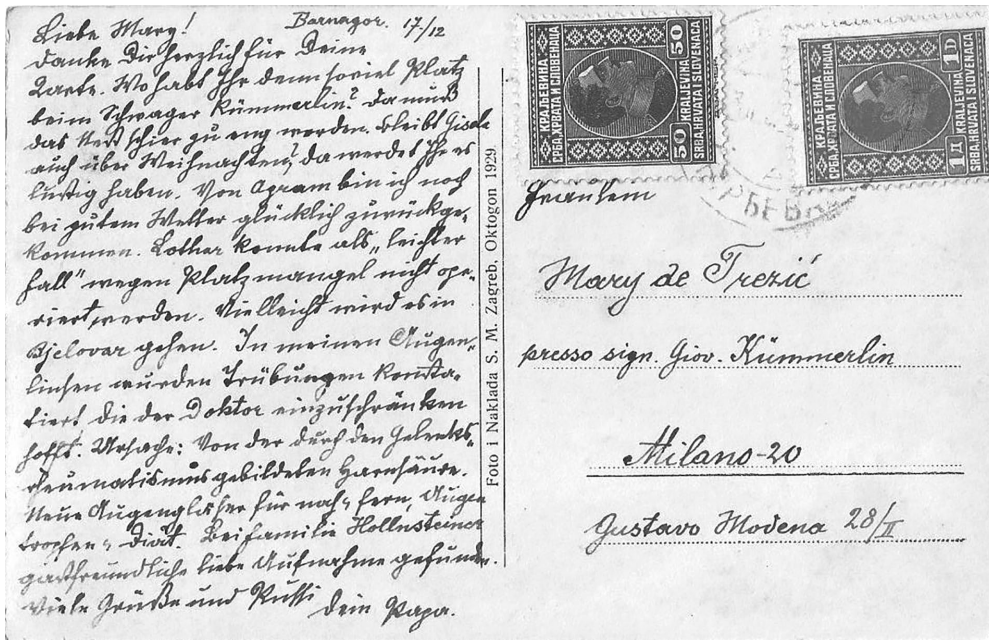 Barnagor. 17/12
Liebe Mary!
Danke Dir herzlich für Deine
Karte. Wo habt Ihr denn soviel Platz
beim Schwager Kümmerlin? Da muß
das Nest schier zu eng werden. Bleibt Gisela
auch über Weihnachten? da werdet Ihr es
lustig haben. Von Agram bin ich noch
bei gutem Wetter glücklich zurückge-
kommen. Lothar konnte als „leichter
Fall" wegen Platzmangel nicht ope-
riert werden. Vielleicht wird es in
Bjelovar gehen. In meinen Augen-
linsen wurden Trübungen konsta-
tiert die der Doktor einzuschränken
hofft. Ursache: Von der durch den Gelenks-
rheumatismus gebildeten Harnsäure.
Neue Augengläser für nah & fern, Augen
tropfen & Diät. Bei Familie Hollnsteiner
gastfreundliche liebe Aufnahme gefunden.
Viele Grüße und Pussi
Dein Papa.
Foto i Naklada S. M. Zagreb, Oktogon 1929.
50 50
КРАЉЕВИНА
СРБА, ХРВАТА И СЛОВЕНАЦА
KRALJEVINA
SRBA, HRVATA I SLOVENACA
1Д 1D
КРАЉЕВИНА
СРБА, ХРВАТА И СЛОВЕНАЦА
KRALJEVINA
SRBA, HRVATA I SLOVENACA
Fräulein
Mary de Trezić
presso sign. Giov. Kümmerlin
Milano-20
Gustavo Modena 28/II